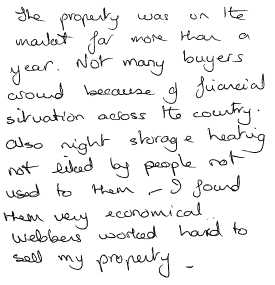 The property was on the
market for more than a
year. Not many buyers
around because of financial
situation across the country.
Also night storage heating
not liked by people not
used to them - I found
them very economical..
Webbers worked hard to
sell my property -